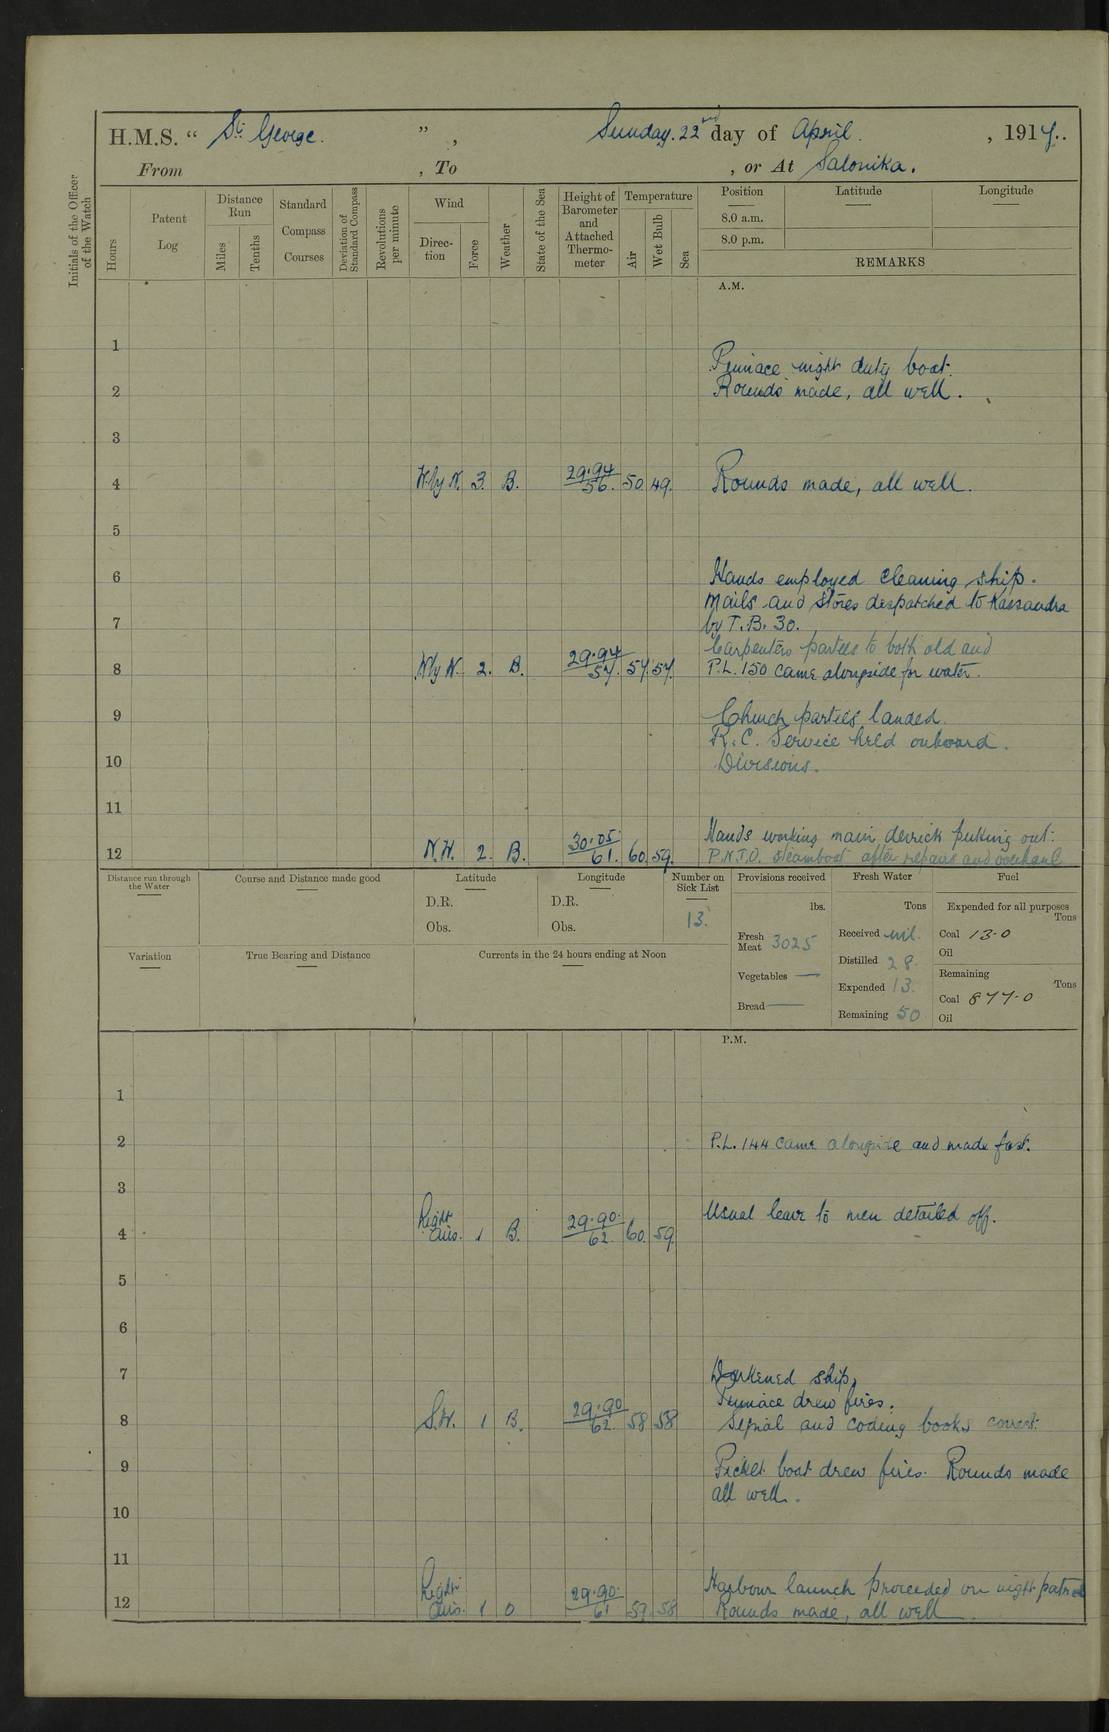 H.M.S. “ St. George. ” , Sunday. 22nd day of April. , 1917..
From , To , or At Salonika.
Initials of the Officer of the Watch
Hours
Patent Log
Distance Run
Miles
Tenths
Standard Compass Courses
Deviation of Standard Compass
Revolutions per minute
Wind
Direc-tion
Force
Weather
State of the Sea
Height of Barometer and Attached Thermo-meter
Temperature
Air
Wet Bulb
Sea
Position Latitude Longitude
8.0 a.m.
8.0 p.m.
REMARKS
A.M.
1
Pinnace night duty boat.
2 Rounds made, all well.
3
4 W.by N. 3. B. 29.94 56. 50. 49. Rounds made, all well.
5
6 Hands employed cleaning ship.
Mails and stores despatched to Kassandra
7 by T.B. 30.
Carpenters parties to both old and
8 W.by N. 2. B. 29.94 57. 57. 57. P.L. 150 came alongside for water.
9 Church parties landed.
R.C. Service held onboard.
10 Divisions.
11
Hands working main derrick putting out.
12 N.W. 2. B. 30.05 61. 60. 59. P.N.T.O. steamboat after repairs and overhaul
Distance run through the Water
Course and Distance made good
Latitude
D.R.
Obs.
Longitude
D.R.
Obs.
Number on Sick List
13.
Provisions received
lbs.
Fresh Meat 3025
Vegetables —
Bread —
Fresh Water
Tons
Received nil.
Distilled 28.
Expended 13.
Remaining 50
Fuel
Expended for all purposes
Tons
Coal 13.0
Oil
Remaining
Tons
Coal 877.0
Oil
Variation
True Bearing and Distance
Currents in the 24 hours ending at Noon
P.M.
1
2 P.L. 144 came alongside and made fast.
3
Usual leave to men detailed off.
4 Light airs. 1 B. 29.90. 62. 60. 59.
5
6
7 Darkened ship.
Pinnace drew fires.
8 S.W. 1 B. 29.90 62. 58 58 Signal and coding books correct.
9 Picket boat drew fires. Rounds made
all well.
10
11
Harbour launch proceeded on night patrol
12 Light airs. 1 O 29.90. 61 59. 58 Rounds made, all well.